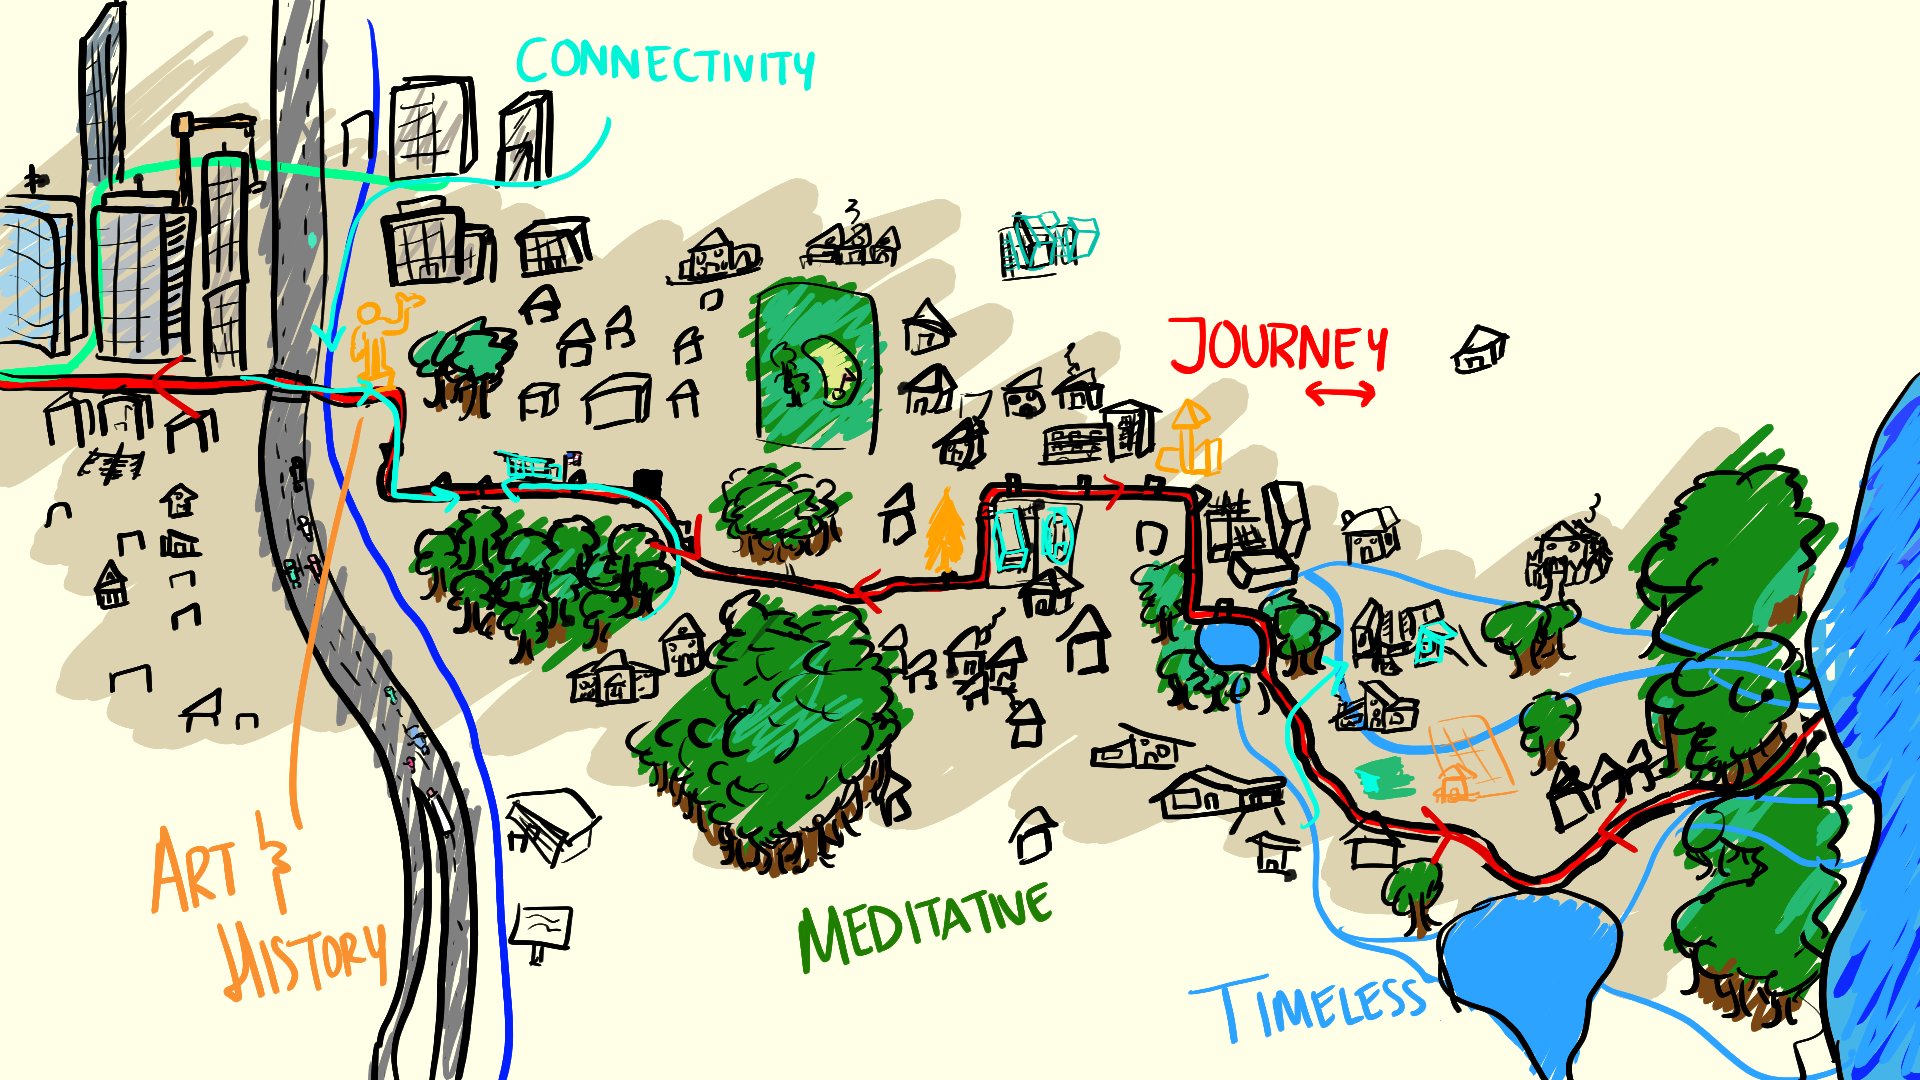 CONNECTIVITY
JOURNEY
ART &
HISTORY
MEDITATIVE
TIMELESS